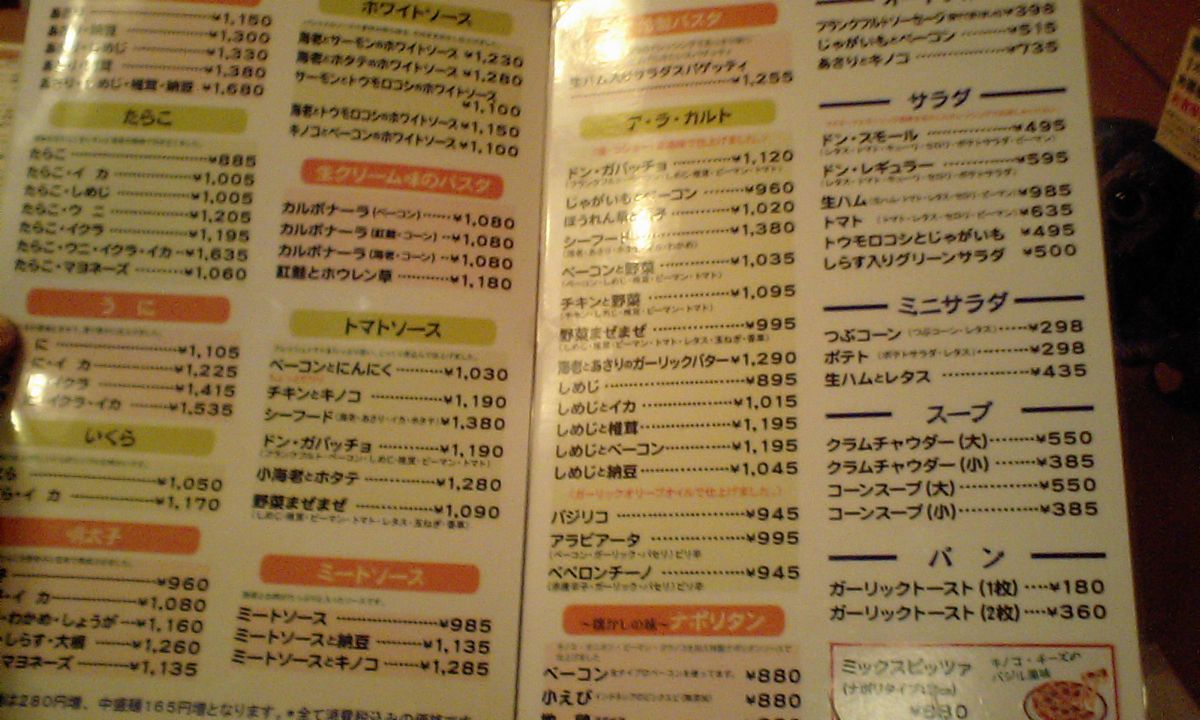 ¥1,150
納豆 ¥1,300
しめじ ¥1,330
¥1,380
あさり・しめじ・椎茸・納豆 ¥1,680
たらこ
たらこ ¥885
たらこ・イカ ¥1,005
たらこ・しめじ ¥1,005
たらこ・ウニ ¥1,205
たらこ・イクラ ¥1,195
たらこ・ウニ・イクラ・イカ ¥1,635
たらこ・マヨネーズ ¥1,060
うに
に ¥1,105
に・イカ ¥1,225
イクラ ¥1,415
イクラ・イカ ¥1,535
いくら
¥1,050
イカ ¥1,170
明太子
¥960
イカ ¥1,080
わかめ・しょうが ¥1,160
しらす・大根 ¥1,260
マヨネーズ ¥1,135
は280円増、中盛麺165円増となります。*全て消費税込みの価格です
ホワイトソース
海老とサーモンのホワイトソース ¥1,230
海老とホタテのホワイトソース ¥1,280
サーモンとトウモロコシのホワイトソース
¥1,100
海老とトウモロコシのホワイトソース ¥1,150
キノコとベーコンのホワイトソース ¥1,100
生クリーム味のパスタ
カルボナーラ(ベーコン) ¥1,080
カルボナーラ(紅鮭・コーン) ¥1,080
カルボナーラ(海老・コーン) ¥1,080
紅鮭とホウレン草 ¥1,180
トマトソース
ベーコンとにんにく ¥1,030
チキンとキノコ ¥1,190
シーフード(海老・あさり・イカ・ホタテ) ¥1,380
ドン・ガバッチョ ¥1,190
(フランクフルト・ベーコン・しめじ・椎茸・ピーマン・トマト)
小海老とホタテ ¥1,280
野菜まぜまぜ ¥1,090
(しめじ・椎茸・ピーマン・トマト・レタス・玉ねぎ・香草)
ミートソース
ミートソース ¥985
ミートソースと納豆 ¥1,135
ミートソースとキノコ ¥1,285
パスタ
生ハム入りサラダスパゲッティ
¥1,255
ア・ラ・カルト
ドン・ガバッチョ ¥1,120
(フランクフルト・ベーコン・しめじ・椎茸・ピーマン・トマト)
じゃがいもとベーコン ¥960
ほうれん草 ¥1,020
シーフード ¥1,380
ベーコンと野菜 ¥1,035
(ベーコン・しめじ・椎茸・ピーマン・トマト)
チキンと野菜 ¥1,095
(チキン・しめじ・椎茸・ピーマン・トマト)
野菜まぜまぜ ¥995
(しめじ・椎茸・ピーマン・トマト・レタス・玉ねぎ・香草)
海老とあさりのガーリックバター ¥1,290
しめじ ¥895
しめじとイカ ¥1,015
しめじと椎茸 ¥1,195
しめじとベーコン ¥1,195
しめじと納豆 ¥1,045
(ガーリックオリーブオイルで仕上げました。)
バジリコ ¥945
アラビアータ ¥995
(ベーコン・ガーリック・パセリ)ピリ辛
ペペロンチーノ ¥945
(赤唐辛子・ガーリック・パセリ)ピリ辛
〜懐かしの味〜ナポリタン
ベーコン ¥880
小えび ¥880
フランクフルトソーセージ ¥398
じゃがいもとベーコン ¥515
あさりとキノコ ¥735
サラダ
ドン・スモール ¥495
(レタス・トマト・キューリ・セロリ・ポテトサラダ・ピーマン)
ドン・レギュラー ¥595
(レタス・トマト・キューリ・セロリ・ポテトサラダ)
生ハム(生ハム・トマト・レタス・セロリ・ピーマン) ¥985
トマト (トマト・レタス・セロリ・ピーマン) ¥635
トウモロコシとじゃがいも ¥495
しらす入りグリーンサラダ ¥500
ミニサラダ
つぶコーン (つぶコーン・レタス) ¥298
ポテト (ポテトサラダ・レタス) ¥298
生ハムとレタス ¥435
スープ
クラムチャウダー(大) ¥550
クラムチャウダー(小) ¥385
コーンスープ(大) ¥550
コーンスープ(小) ¥385
パン
ガーリックトースト(1枚) ¥180
ガーリックトースト(2枚) ¥360
ミックスピッツァ
キノコ・チーズの
バジル風味